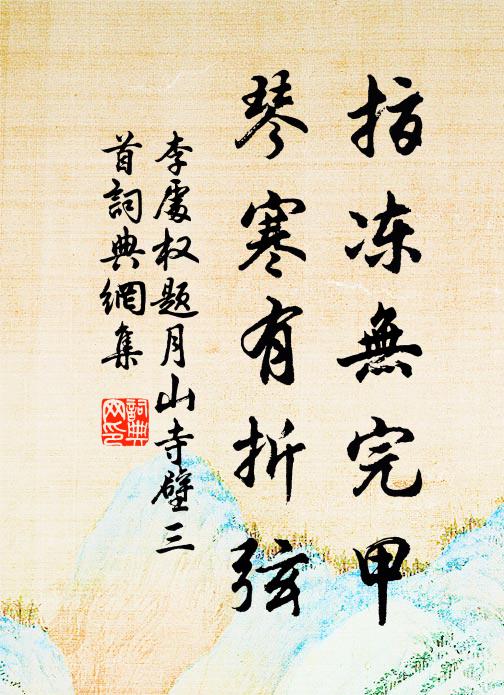 指冻無完甲
琴寒有折弦
李處权题月山寺壁三
首詞典網集
詞典
网印